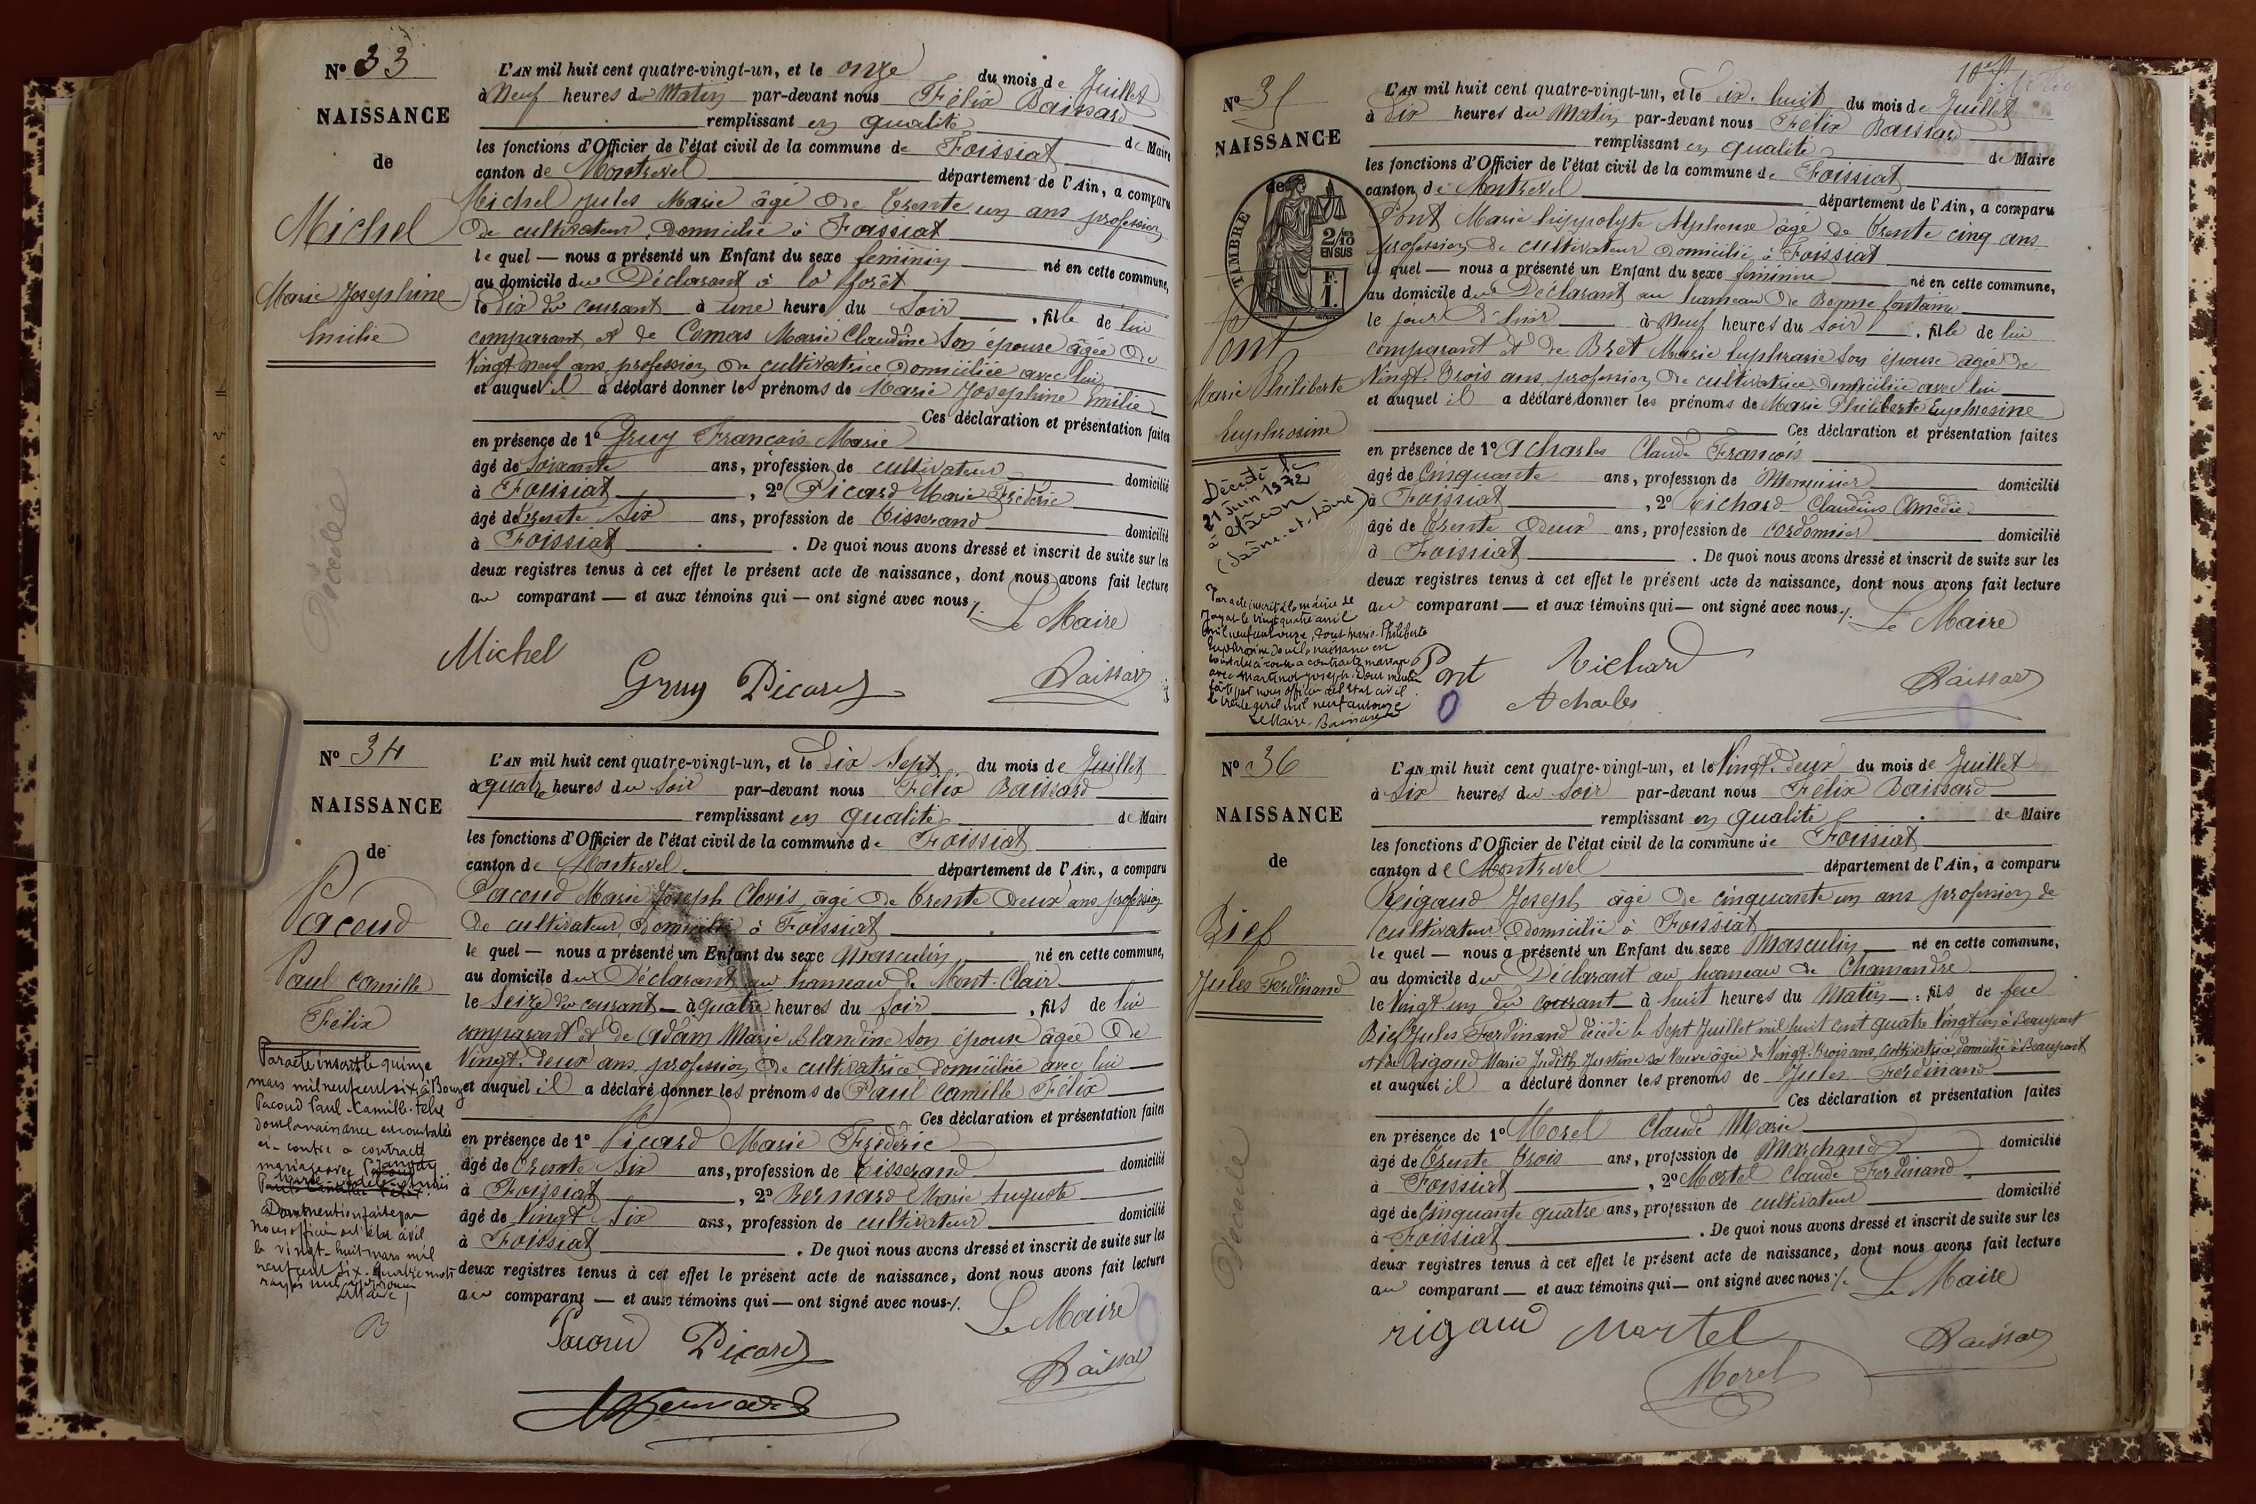 Nº 33
NAISSANCE
de
Michel
Marie Joséphine
Emilie
Décédée
L'AN mil huit cent quatre-vingt-un, et le onze du mois de Juillet
à Neuf heures du Matin par-devant nous Félix Baissard
remplissant en qualité de Maire
les fonctions d'Officier de l'état civil de la commune de Foissiat
canton de Montrevel département de l'Ain, a comparu
Michel Jules Marie âgé de trente un ans profession
de cultivateur, domicilié à Foissiat
le quel — nous a présenté un Enfant du sexe féminin né en cette commune,
au domicile du Déclarant à la forêt
le dix du courant à une heure du Soir, fille de lui
comparant et de Comas Marie Claudine Son épouse âgée de
Vingt neuf ans, profession de cultivatrice domiciliée avec lui
et auquel il a déclaré donner les prénoms de Marie Joséphine Emilie
Ces déclaration et présentation faites
en présence de 1º Gruy François Marie
âgé de Soixante ans, profession de cultivateur domicilié
à Foissiat, 2º Picard Marie Frédéric
âgé de trente Six ans, profession de tisserand domicilié
à Foissiat. De quoi nous avons dressé et inscrit de suite sur les
deux registres tenus à cet effet le présent acte de naissance, dont nous avons fait lecture
au comparant — et aux témoins qui — ont signé avec nous ./.
Le Maire
Michel Gruy Picard Baissard
Nº 34
NAISSANCE
de
Pacoud
Paul Camille
Félix
Par acte inscrit le quinze
mars mil neuf cent six, à Bourg
Pacoud Paul-Camille-Félix
dont la naissance est constatée
ci-contre a contracté
mariage avec
Dont mention faite par
nous officier de l'état civil
le vingt-huit mars mil
neuf cent six. Quatre mots
rayés nuls
Le Maire
B
L'AN mil huit cent quatre-vingt-un, et le Dix Sept du mois de Juillet
à quatre heures du Soir par-devant nous Félix Baissard
remplissant en qualité de Maire
les fonctions d'Officier de l'état civil de la commune de Foissiat
canton de Montrevel département de l'Ain, a comparu
Pacoud Marie Joseph Clovis, âgé de trente deux ans profession
de cultivateur, domicilié à Foissiat
le quel — nous a présenté un Enfant du sexe Masculin né en cette commune,
au domicile du Déclarant au hameau de Mont-Clair
le Seize du courant — à quatre heures du Soir, fils de lui
comparant et de Adam Marie Blandine Son épouse âgée de
Vingt-deux ans, profession de cultivatrice domiciliée avec lui
et auquel il a déclaré donner les prénoms de Paul Camille Félix
Ces déclaration et présentation faites
en présence de 1º Picard Marie Frédéric
âgé de trente Six ans, profession de tisserand domicilié
à Foissiat, 2º Bernard Marie Auguste
âgé de Vingt Six ans, profession de cultivateur domicilié
à Foissiat. De quoi nous avons dressé et inscrit de suite sur les
deux registres tenus à cet effet le présent acte de naissance, dont nous avons fait lecture
au comparant — et aux témoins qui — ont signé avec nous ./.
Le Maire
Pacoud Picard Baissard
Bernard
Nº 35
NAISSANCE
de
TIMBRE
2/10 EN SUS
F. 1.
Pont
Marie Philiberte
Euphrosine
Décédée le
21 Juin 1972
à Mâcon
(Saône-et-Loire)
Par acte inscrit à la mairie de
Jayat le vingt quatre avril
mil neuf cent onze, Pont Marie-Philiberte
Euphrosine dont la naissance est
constatée ci-contre a contracté mariage
avec Martinot Joseph. Dont mention
faite par nous officier de l'état civil
le trente avril mil neuf cent onze
Le Maire, Baissard
L'AN mil huit cent quatre-vingt-un, et le Dix-huit du mois de Juillet
à Dix heures du Matin par-devant nous Félix Baissard
remplissant en qualité de Maire
les fonctions d'Officier de l'état civil de la commune de Foissiat
canton de Montrevel département de l'Ain, a comparu
Pont Marie hippolyte Alphonse âgé de trente cinq ans
profession de cultivateur domicilié à Foissiat
le quel — nous a présenté un Enfant du sexe féminine né en cette commune,
au domicile du Déclarant au hameau de Bonne fontaine
le jour d'hier à Neuf heures du Soir, fille de lui
comparant et de Bret Marie Euphrasie Son épouse âgée de
Vingt-trois ans, profession de cultivatrice domiciliée avec lui
et auquel il a déclaré donner les prénoms de Marie Philiberte Euphrosine
Ces déclaration et présentation faites
en présence de 1º Acharles Claude François
âgé de Cinquante ans, profession de Menuisier domicilié
à Foissiat, 2º Richard Claudius Amédée
âgé de trente deux ans, profession de cordonnier domicilié
à Foissiat. De quoi nous avons dressé et inscrit de suite sur les
deux registres tenus à cet effet le présent acte de naissance, dont nous avons fait lecture
au comparant — et aux témoins qui — ont signé avec nous ./.
Le Maire
Pont Richard Baissard
Acharles
Nº 36
NAISSANCE
de
Bief
Jules Ferdinand
Décédé
L'AN mil huit cent quatre-vingt-un, et le Vingt-deux du mois de Juillet
à Six heures du Soir par-devant nous Félix Baissard
remplissant en qualité de Maire
les fonctions d'Officier de l'état civil de la commune de Foissiat
canton de Montrevel département de l'Ain, a comparu
Rigaud Joseph âgé de cinquante un ans profession de
cultivateur, domicilié à Foissiat
le quel — nous a présenté un Enfant du sexe Masculin — né en cette commune,
au domicile du Déclarant au hameau de Chamandre
le Vingt un du courant — à huit heures du Matin — : fils de feu
Bief Jules Ferdinand décédé le Sept Juillet mil huit cent quatre Vingt un à Beaupont
et de Rigaud Marie Judith Justine sa Veuve âgée de Vingt-trois ans, cultivatrice, domiciliée à Beaupont
et auquel il a déclaré donner les prénoms de Jules Ferdinand
Ces déclaration et présentation faites
en présence de 1º Morel Claude Marie
âgé de trente trois ans, profession de Marchand domicilié
à Foissiat, 2º Martel Claude Ferdinand
âgé de Cinquante quatre ans, profession de cultivateur domicilié
à Foissiat. De quoi nous avons dressé et inscrit de suite sur les
deux registres tenus à cet effet le présent acte de naissance, dont nous avons fait lecture
au comparant — et aux témoins qui — ont signé avec nous ./.
Le Maire
rigaud Martel Baissard
Morel